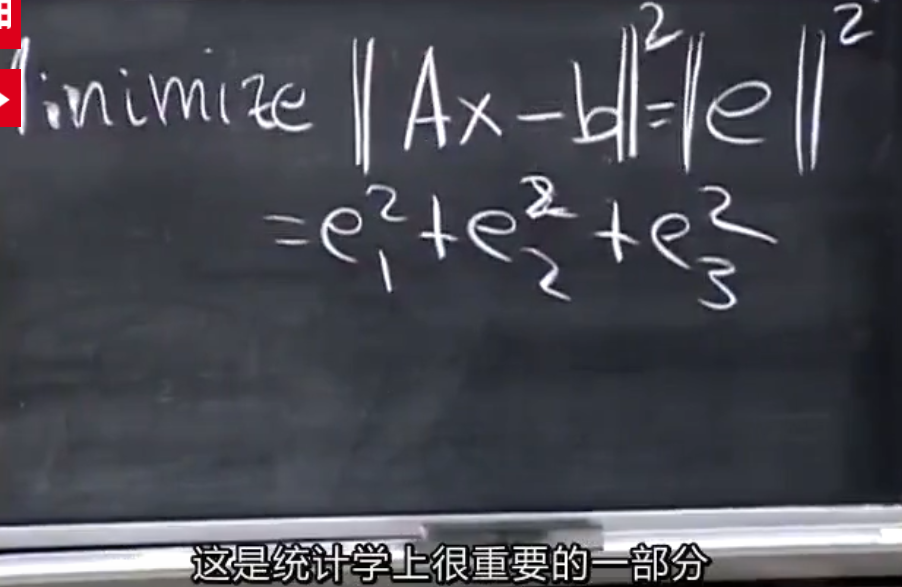 Minimize ||Ax-b||²=||e||²
=e₁²+e₂²+e₃²
这是统计学上很重要的一部分